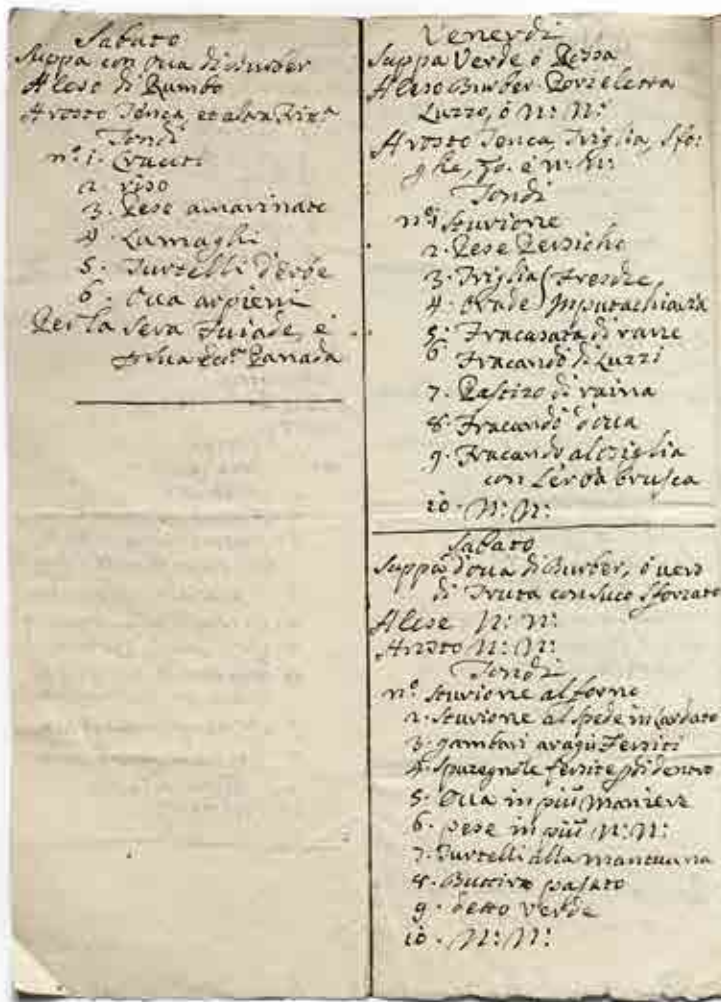 Sabato
Suppa con Oua di Burber
Aleso di Rumbo
Arosto Tenca, et altra
Tondi
nº: 1. Crauti
2. riso
3. Pese amarinato
4. Lumaghi
5. Turtelli d'erbe
6. Oua arpieni
Per la Sera Fuiade, e
Panada
Venerdi
Suppa Verde ó Ressa
Aleso Burber Porzeletta
Luzzo, ó N: N:
Arosto Tenca, Triglia, Sfo:
ghe, é N: N:
Tondi
nº: 1 Sturione
2. Pese Persicho
3. Triglia Fresche
4. Orade
5. Fracasata di rane
6 Fracandò di Luzzi
7. Pastizo di raina
8. Fracandò d'oca
9. Fracandò
con L'erba brusca
10. N: N:
Sabato
Suppa d'oua di Burber, ó uero
di Truta con suco sforzato
Alese N: N:
Arosto N: N:
Tondi
nº. Sturione al forno
2. Sturione al spede inlardato
3. gambari aragù
4. di dentro
5. Oua in più maniere
6. pese in più N: N:
7. Turtelli alla mantuana
8. Butiro pasato
9. detto verde
10. N: N: